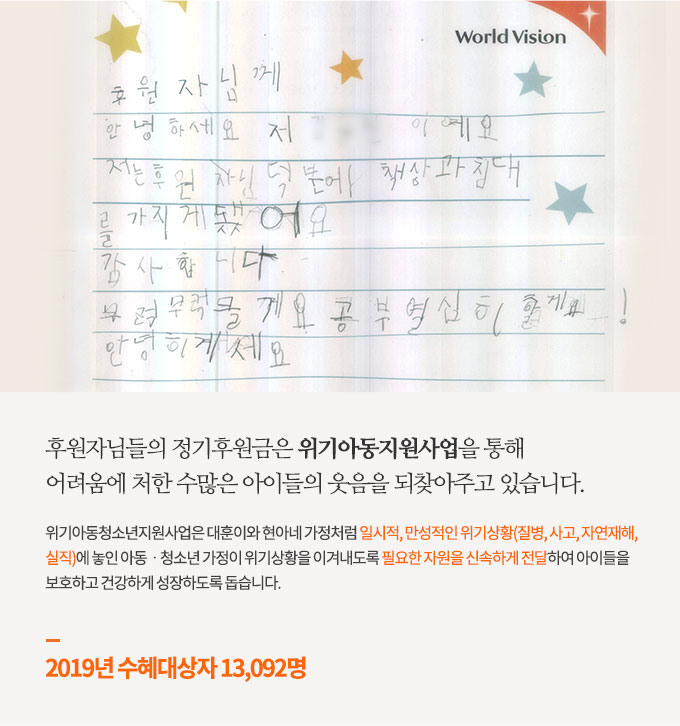 World Vision
후원자님께
안녕하세요 저 이예요
저는후원자님 덕분에 책상과침대
를 가지게됐어요
감사합니다
무럭무럭클께요 공부열심히 할게요!
안녕히계세요
후원자님들의 정기후원금은 위기아동지원사업을 통해
어려움에 처한 수많은 아이들의 웃음을 되찾아주고 있습니다.
위기아동청소년지원사업은 대훈이와 현아네 가정처럼 일시적, 만성적인 위기상황(질병, 사고, 자연재해,
실직)에 놓인 아동ㆍ청소년 가정이 위기상황을 이겨내도록 필요한 자원을 신속하게 전달하여 아이들을
보호하고 건강하게 성장하도록 돕습니다.
2019년 수혜대상자 13,092명